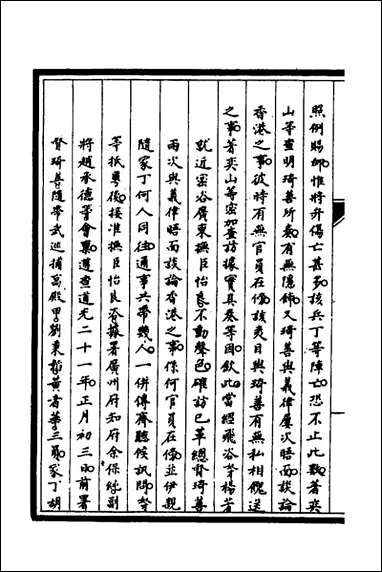 照例賜卹惟將弁傷亡甚多該兵丁等陣亡恐不止此數著奕
山等查明琦善所奏有無隱飾又琦善與義律屢次晤面談論
香港之事彼時有無官員在傍該夷目與琦善有無私相餽送
之事著奕山等密加查訪據實具奏等因欽此當經飛咨參楊芳
就近密咨廣東撫臣怡良不動聲色確訪已革總督琦善
兩次與義律晤面談論香港之事係何官員在傍並伊親
隨家丁何人同往通事共帶幾人一併傳齊聽候訊問等
等抵粵後接准撫臣怡良咨據署廣州府知府余保純副
將趙承德等會稟遵查道光二十一年正月初三日前署
督琦善隨帶武巡捕高殿甲劉秉哲黃者華三員家丁胡